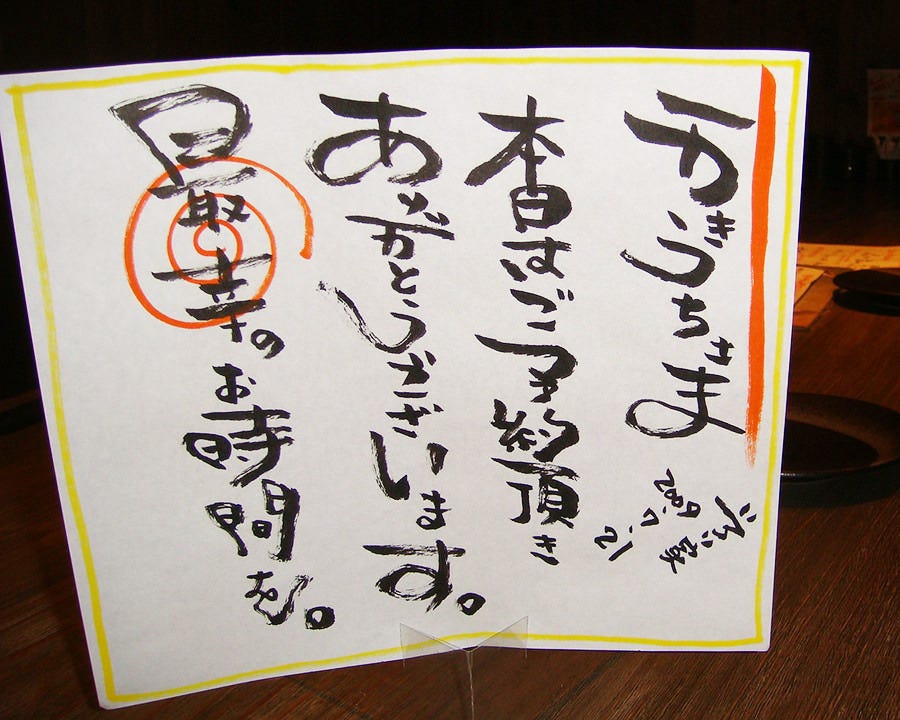 かきうちさま
2009.7.21
本日はご予約頂き
ありがとうございます。
最幸のお時間を。